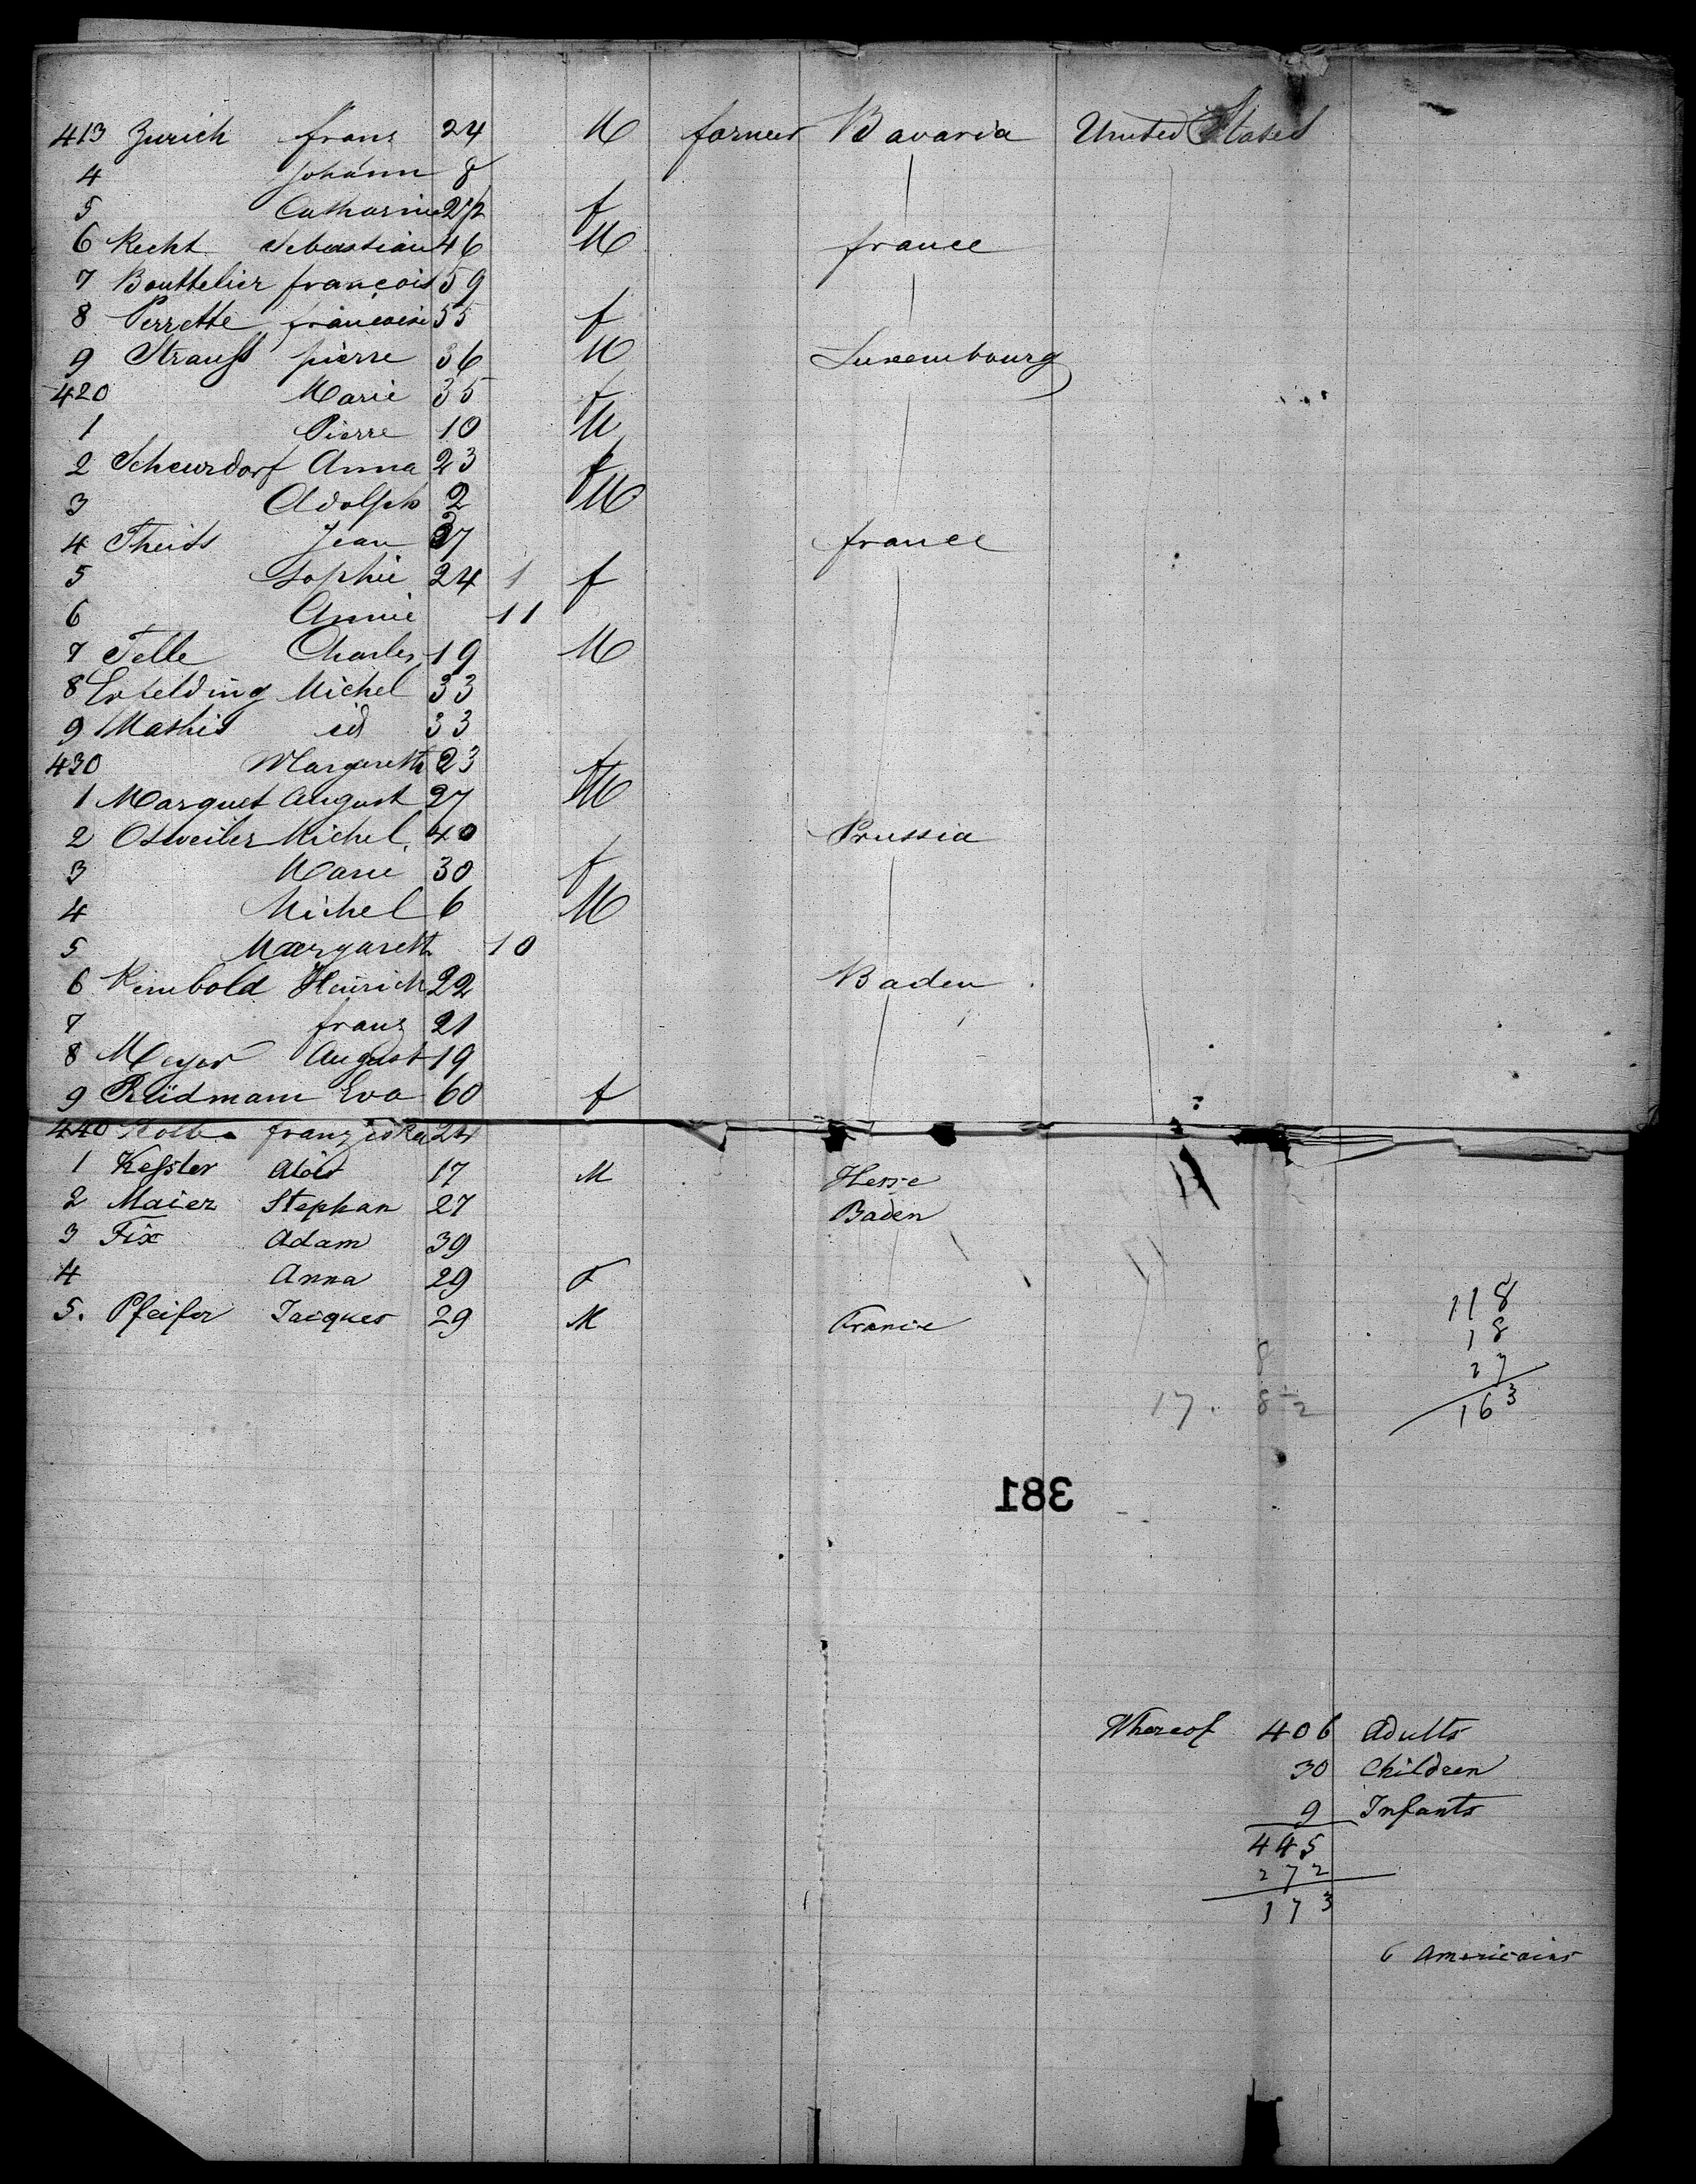 413 Zurich franz 24 M farmer Bavaria United States
4 Johann 8
5 Catharine 2 1/2 f
6 Recht Sebastian 46 M france
7 Bouttelier françois 59
8 Perrette françoise 55 f
9 Strauss pierre 36 M Luxembourg
420 Marie 35 f
1 Pierre 10 M
2 Scheurdorf Anna 23 f
3 Adolph 2 M
4 Theids Jean 37 france
5 Sophie 24 1 f
6 Annie 11
7 Telle Charles 19 M
8 Erfelding Michel 33
9 Mathis id 33
430 Margareth 23 f
1 Marquet August 27 M
2 Osweiler Michel 40 Prussia
3 Marie 30 f
4 Michel 6 M
5 Margareth 10
6 Reimbold Heinrich 22 Baden
7 franz 21
8 Meyer August 19
9 Rüdmann Eva 60 f
440 franziska 24
1 Kessler Alois 17 M Hesse
2 Maier Stephan 27 Baden
3 Fix Adam 39
4 Anna 29 F
5. Pfeifer Jacques 29 M France
118
18
27
163
8
17. 8 1/2
381
Whereof 406 Adults
30 Children
9 Infants
445
272
173
6 americains